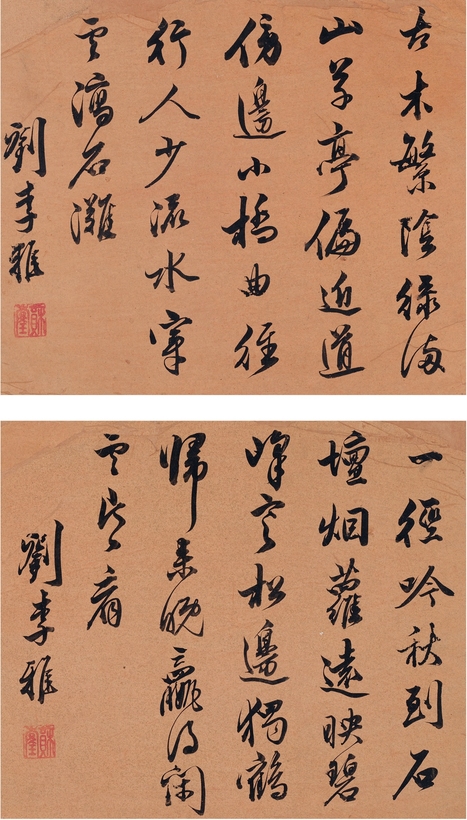 古木繁陰綠滿
山草亭偏近道
傍邊小橋曲徑
行人少流水穿
雲瀉石灘
劉李雅
一徑吟秋到石
壇烟蘿遠映碧
峰寒松邊獨鶴
歸來晚贏得閑
雲看
劉李雅